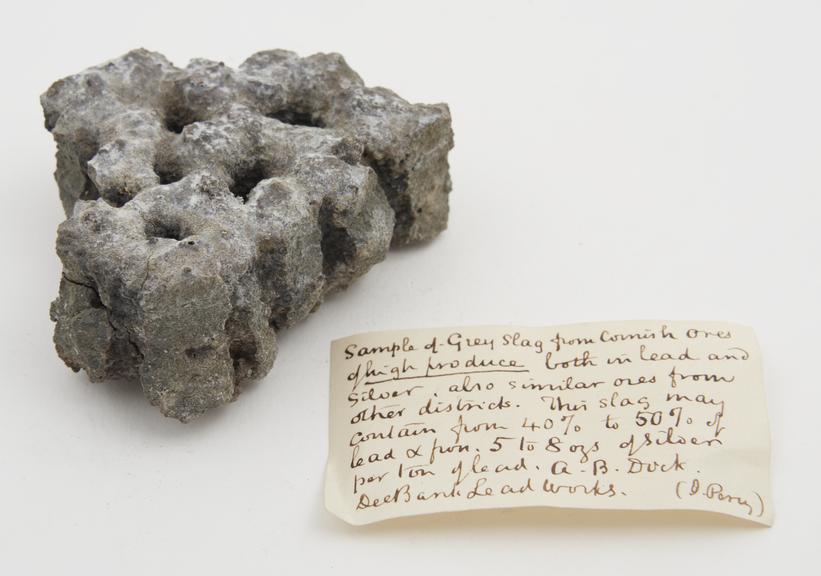 Sample of Grey Slag from Cornish ores
of high produce both in lead and
Silver, also similar ores from
other districts. This slag may
contain from 40% to 50% of
lead & from 5 to 8 ozs of Silver
per ton of lead. A.B. Dock.
Dee Bank Lead Works. (D. Percy)